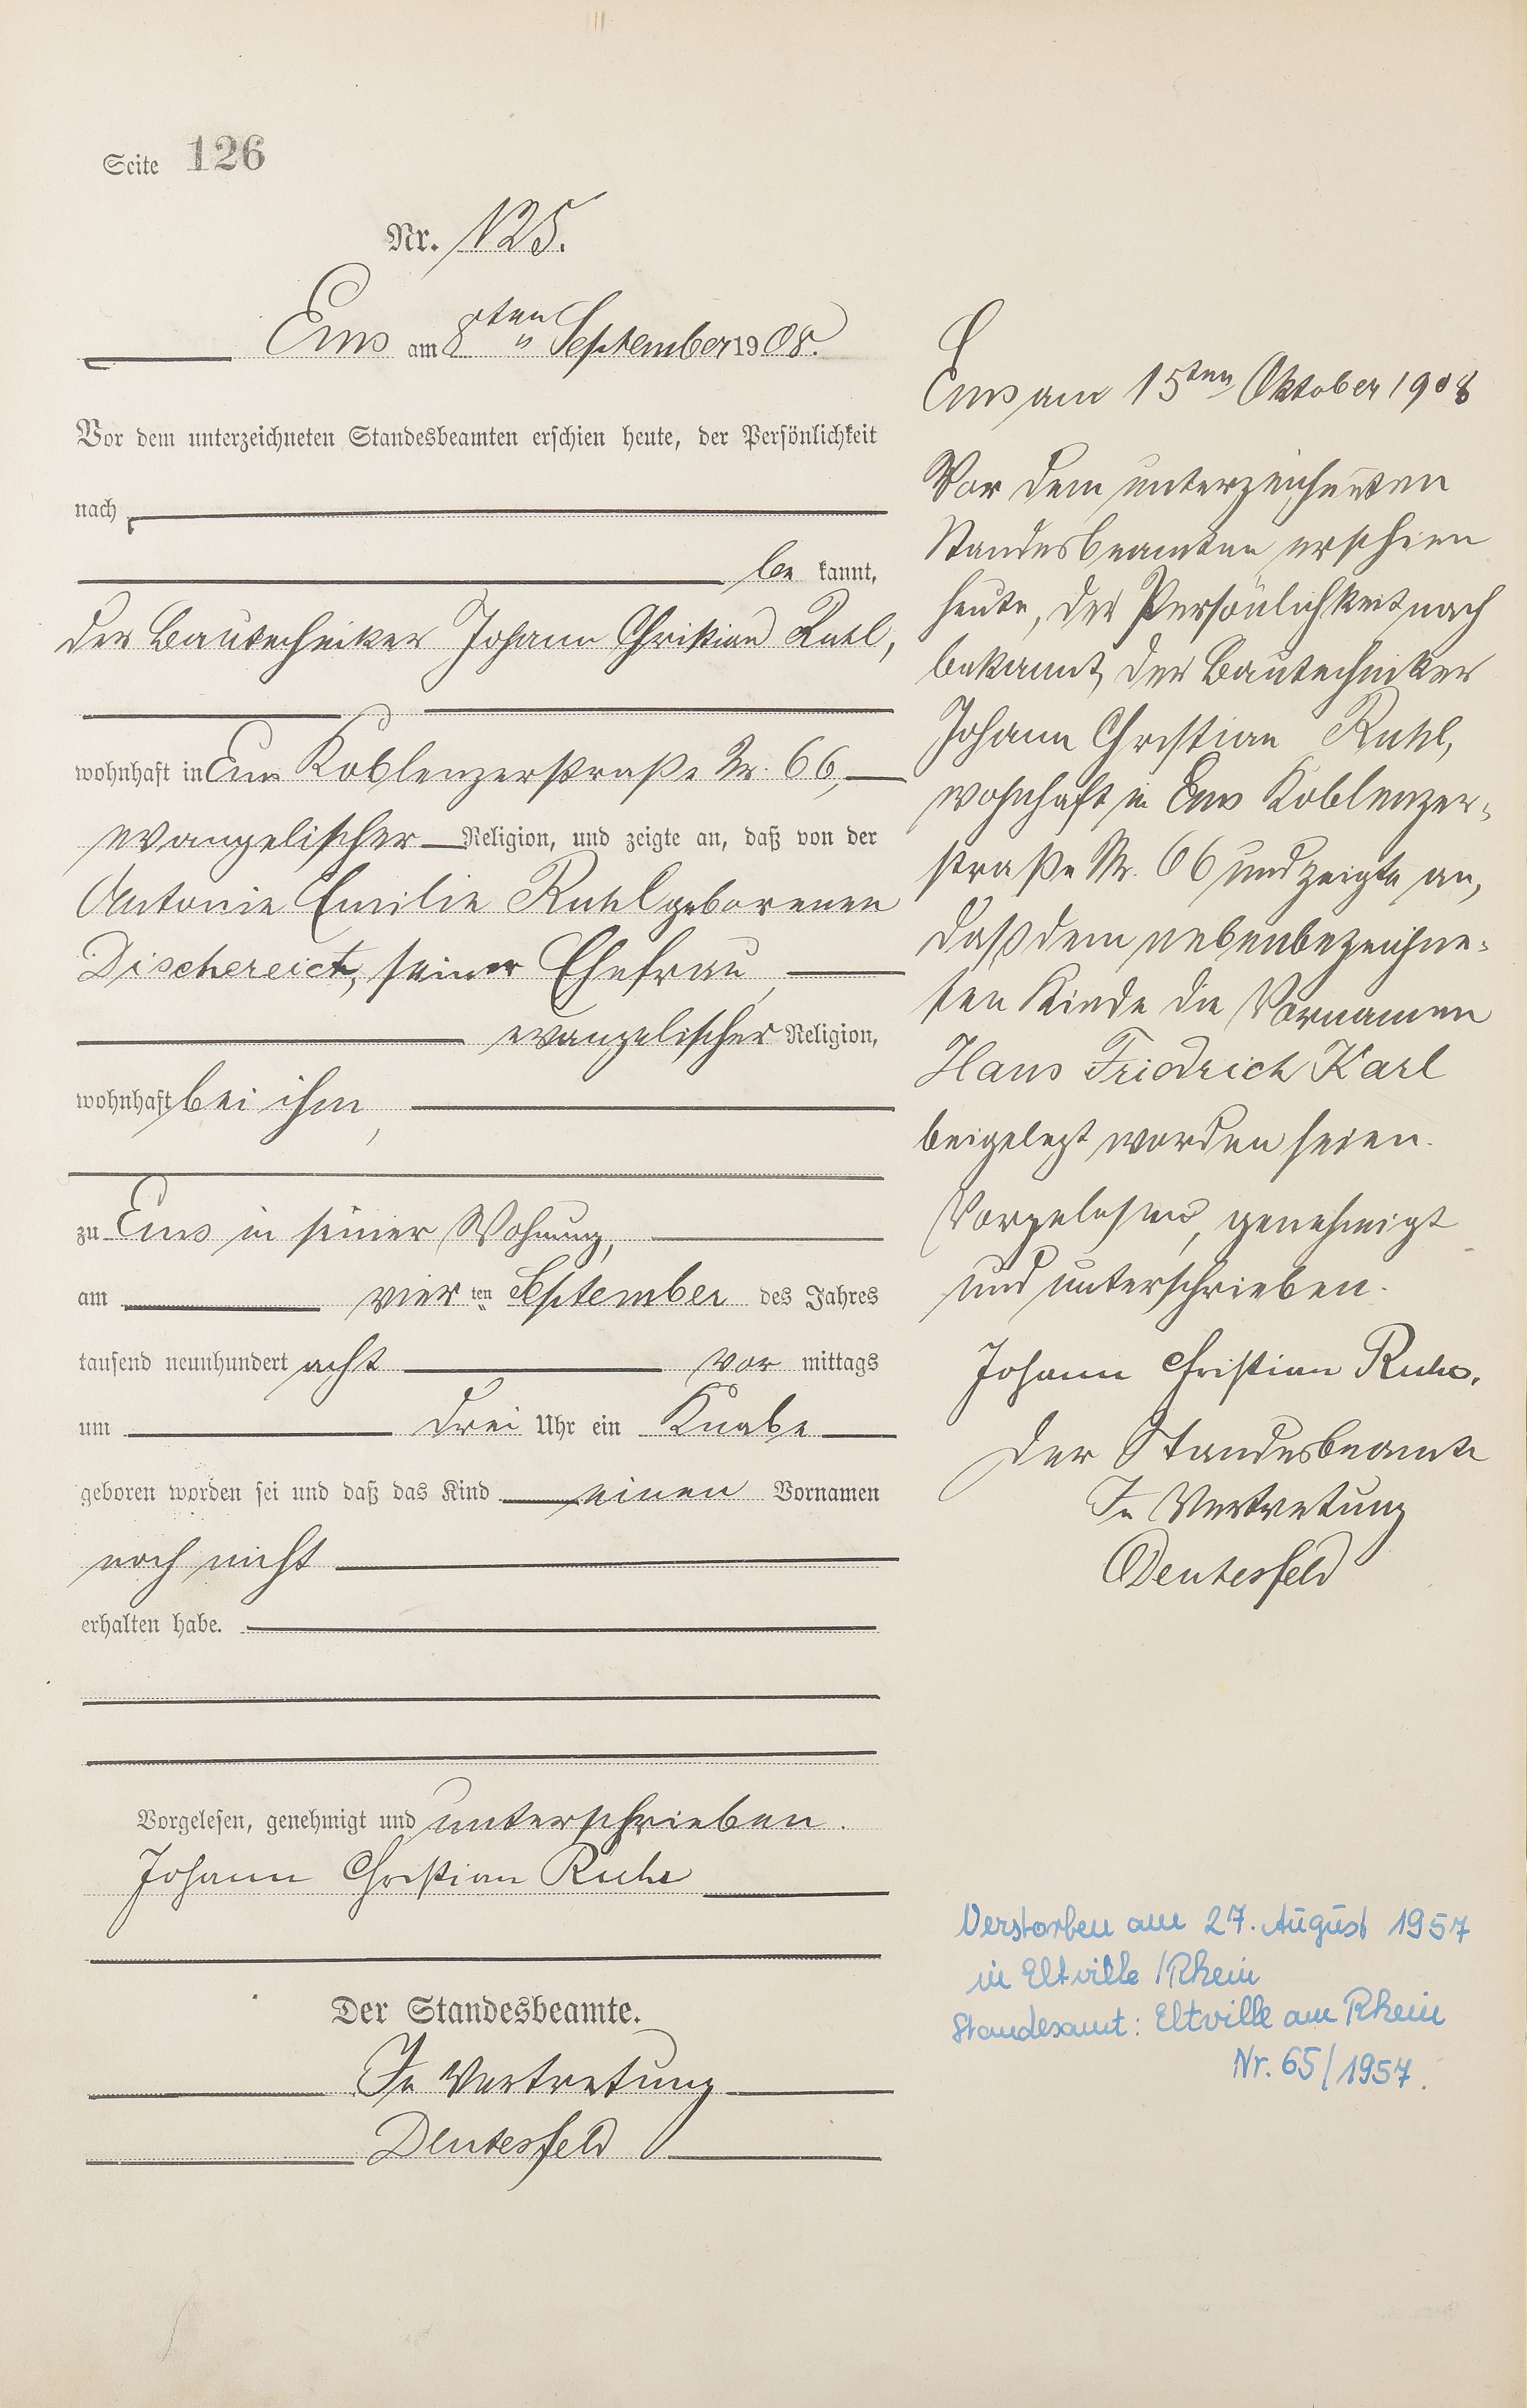 Seite 126
Nr. 125.
Ems am 8ten September 1908.
Vor dem unterzeichneten Standesbeamten erschien heute, der Persönlichkeit
nach
be kannt,
der Bautechniker Johann Christian Ruhl,
wohnhaft in Ems Koblenzerstraße Nr. 66,
evangelischer Religion, und zeigte an, daß von der
Antonie Emilie Ruhl geborenen
Dischereit, seiner Ehefrau,
evangelischer Religion,
wohnhaft bei ihm,
zu Ems in seiner Wohnung,
am vier ten September des Jahres
tausend neunhundert acht vor mittags
um drei Uhr ein Knabe
geboren worden sei und daß das Kind einen Vornamen
noch nicht
erhalten habe.
Vorgelesen, genehmigt und unterschrieben.
Johann Christian Ruhl
Der Standesbeamte.
In Vertretung
Deutesfeld
Ems am 15ten Oktober 1908
Vor dem unterzeichneten
Standesbeamten erschien
heute, der Persönlichkeit nach
bekannt, der Bautechniker
Johann Christian Ruhl,
wohnhaft in Ems Koblenzer-
straße Nr. 66 und zeigte an,
daß dem nebenbezeichne-
ten Kinde die Vornamen
Hans Friedrich Karl
beigelegt worden seien.
Vorgelesen, genehmigt
und unterschrieben.
Johann Christian Ruhl.
Der Standesbeamte
In Vertretung
Deutesfeld
Verstorben am 27. August 1957
in Eltville / Rhein
Standesamt: Eltville am Rhein
Nr. 65/1957.